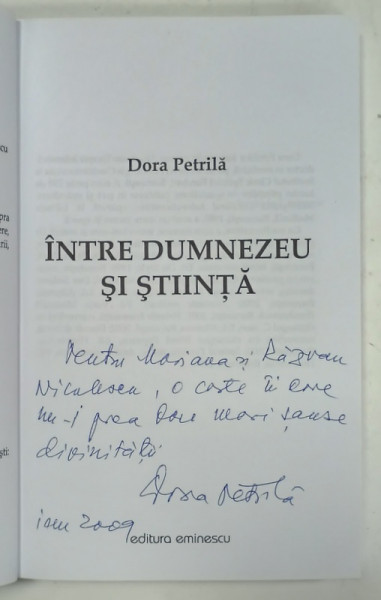 Dora Petrilă
ÎNTRE DUMNEZEU
ŞI ŞTIINŢĂ
Pentru Mariana și Răzvan
Niculescu, o carte în care
nu-i prea dau mari șanse
divinității
Dora Petrilă
2009
editura eminescu
cu
pra
ere,
rii,
ști: